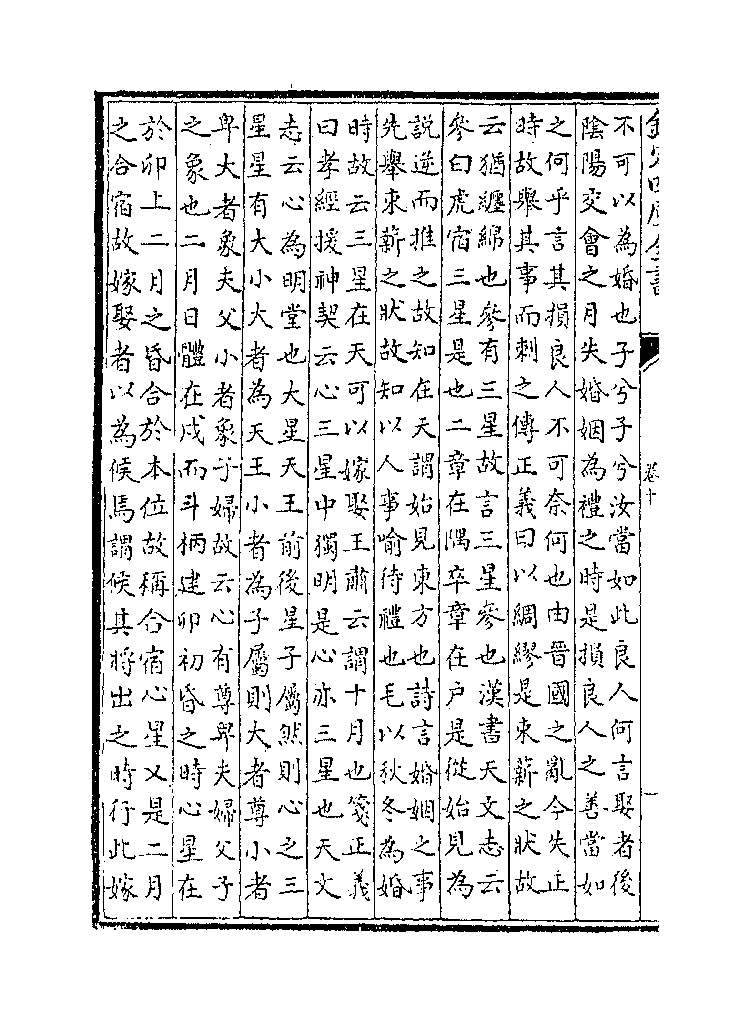 欽定四庫全書
卷十
不可以為婚也子兮子兮汝當如此良人何言娶者後
陰陽交會之月失婚姻為禮之時是損良人之善當如
之何乎言其損良人不可奈何也由晉國之亂今失正
時故舉其事而刺之傳正義曰以綢繆是束薪之狀故
云猶纏綿也參有三星故言三星參也漢書天文志云
參曰虎宿三星是也二章在隅卒章在户是從始見為
說逆而推之故知在天謂始見東方也詩言婚姻之事
先舉束薪之狀故知以人事喻待禮也毛以秋冬為婚
時故云三星在天可以嫁娶王肅云謂十月也箋正義
曰孝經援神契云心三星中獨明是心亦三星也天文
志云心為明堂也大星天王前後星子屬然則心之三
星星有大小大者為天王小者為子屬則大者尊小者
卑大者象夫父小者象子婦故云心有尊卑夫婦父子
之象也二月日體在戌而斗柄建卯初昏之時心星在
於卯上二月之昏合於本位故稱合宿心星又是二月
之合宿故嫁娶者以為候焉謂候其將出之時行此嫁